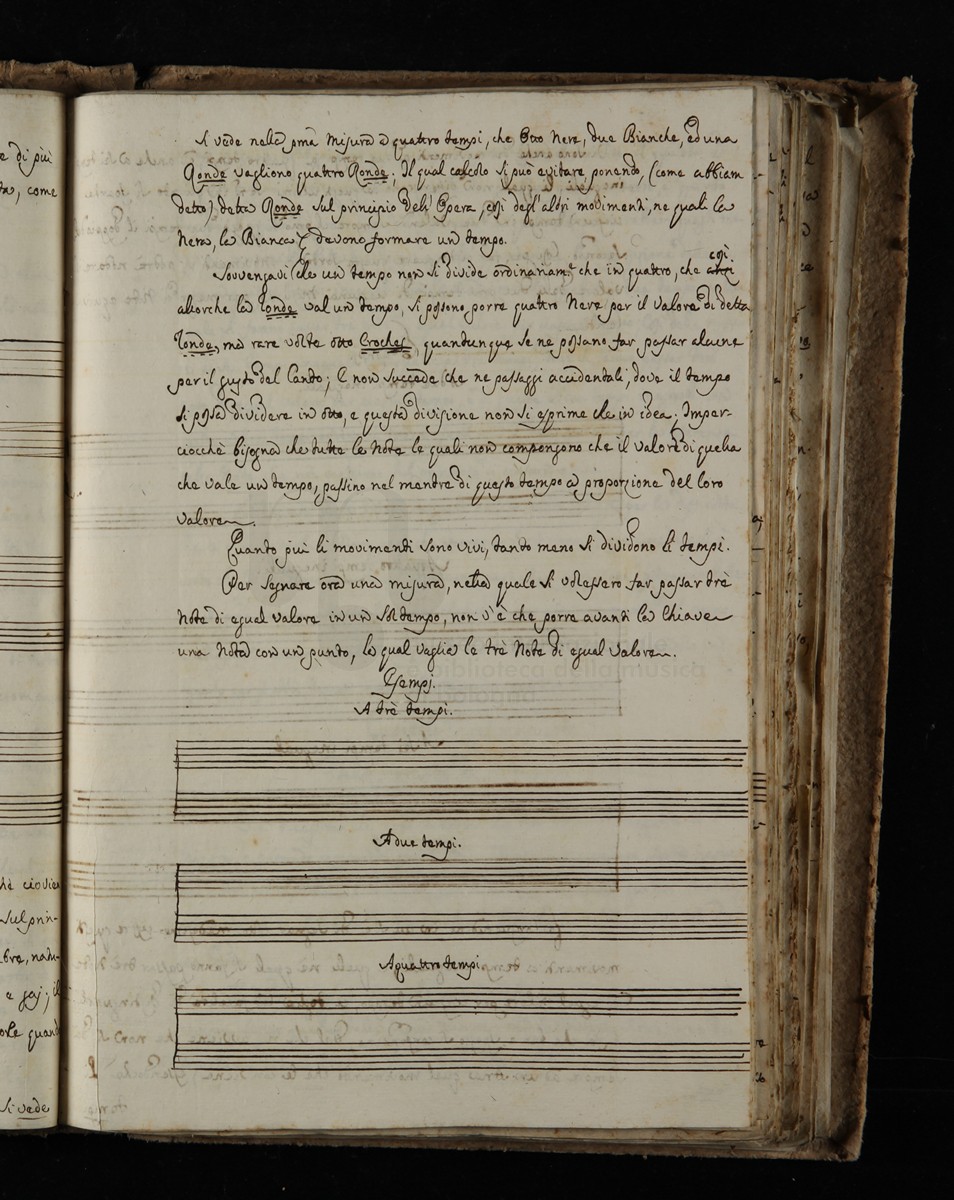 Si vede nella pma Misura a quattro tempi, che Otto Nere, due Bianche, ed una
Ronde vagliono quattro Ronde; Il qual calcolo si può evitare, ponendo, (come abbiam
detto) detta Ronde sul principio dell' Opera, e così degl'altri movimenti, ne quali la
Nera, la Bianca devono formare un tempo.
Sovvengavi che un tempo non si divide ordinariamte che in quattro, che così
allorche la Ronde val un tempo, si possono porre quattro Nere per il valore di detta
Ronde, ma rare volte otto Croches, quantunque se ne possano far passar alcune
per il gusto del Canto; E non succede che ne passaggi accidentali, dove il tempo
si possa dividere in otto, e questa divisione non si esprime che in idea; Imper-
ciocchè bisogna che tutte le Note le quali non compongono che il valore di quella
che vale un tempo, passino nel mentre di questo tempo a proporzione del loro
valore.
Quanto più li movimenti sono vivi, tanto meno si dividono li tempi.
Per segnare ora una misura, nella quale si volessero far passar trè
Note di egual valore in un sol tempo, non v'è che porre avanti la Chiave
una Nota con un punto, la qual vaglia le trè Note di egual valore.
Esempj.
A trè tempi.
A due tempi.
A quattro tempi.
e di più
ta, come
sul prin-
a gaj; il
Si vede
biblioteca della musica
bologna